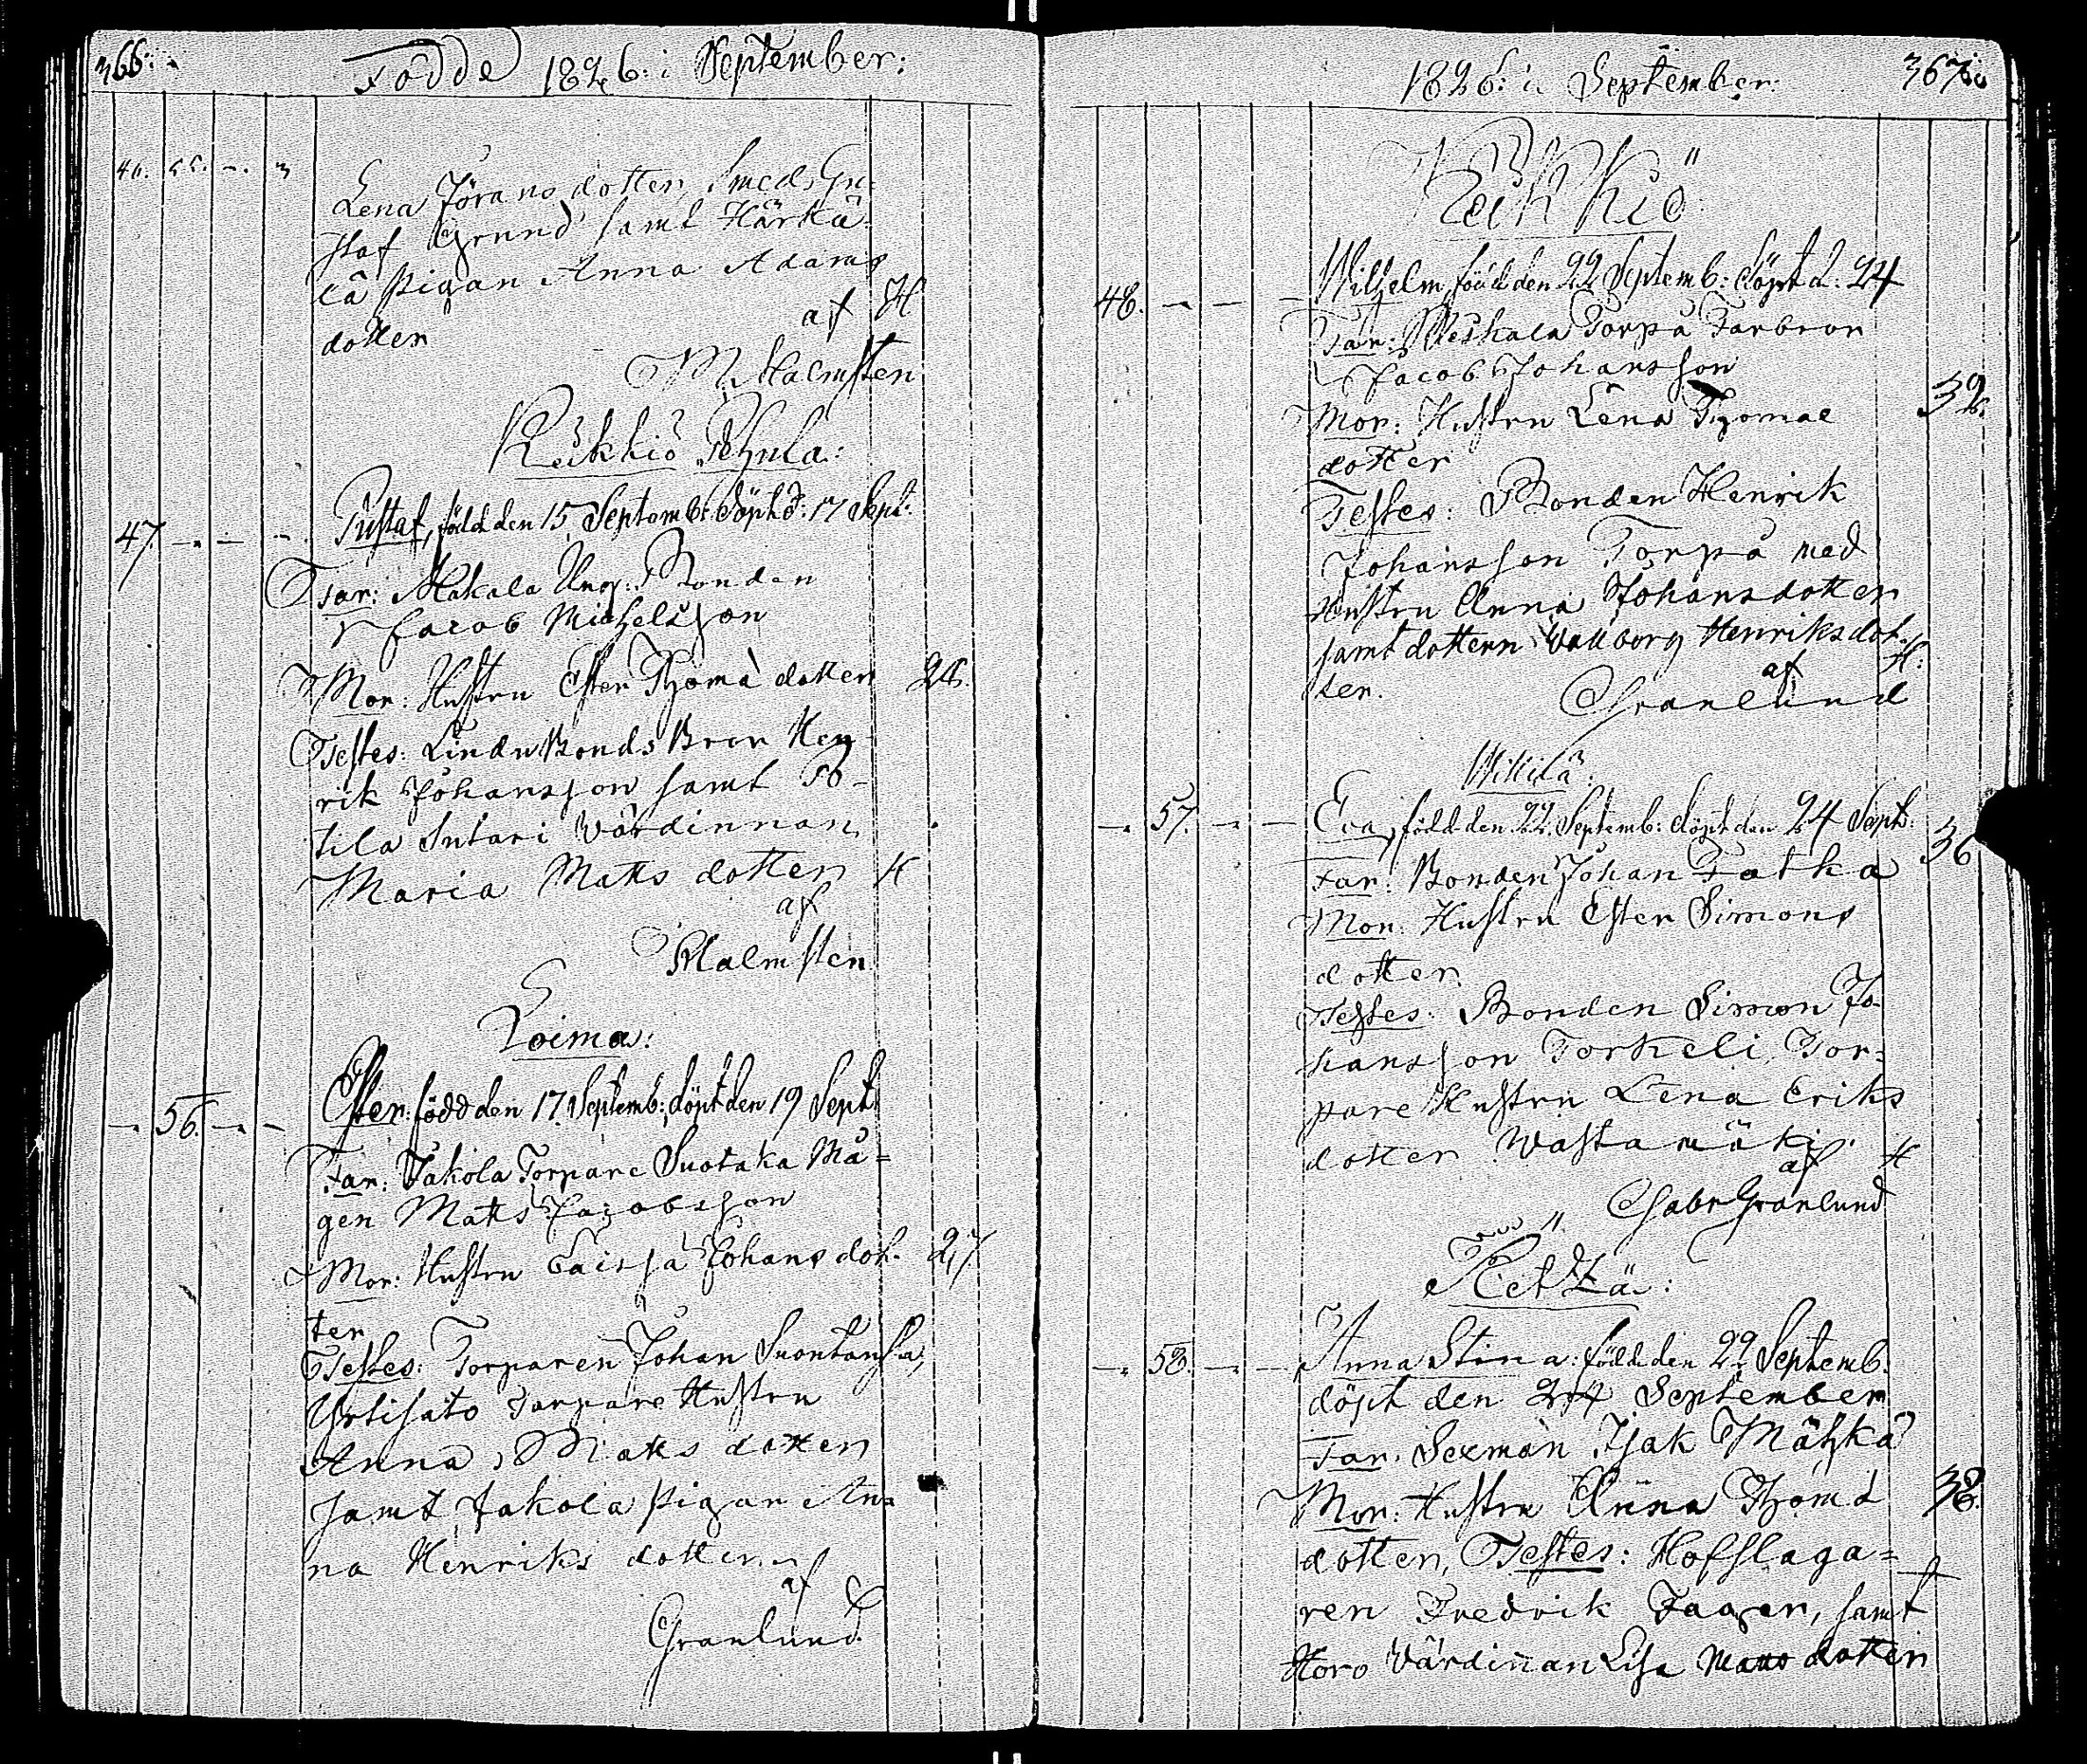 366:
Födde 1826: i September:
46. 55. -. 3
Lena Jörans dotter, Smeds Gu-
staf Grund samt Härkä-
lä Pigan Anna Adams
dotter af H
M Malmsten
Keikkiö Kyula:
47. Gustaf, född den 15 Septemb: döpt d: 17 Sept:
Far: Makala Ung: Bonden
Jacob Michelsson
Mor: Hustru Ester Thoma dotter 28.
Testes: Lindu Bonds Bror Hen
rik Johansson samt So-
tila Sutari Värdinnan
Maria Matts dotter H
af
Malmsten
Loima:
56. Ester: född den 17 Septemb: döpt den 19 Sept:
Far: Jakola Torpare Suotaka Må=
gen Matts Jacobsson
Mor: Hustru Caissa Johans dot- 27
ter
Testes: Torparen Johan Suontausta,
Yrtisato Torpare Hustru
Anna Matts dotter
samt Jakola Pigan An=
na Henriks dotter
af
Granlund
1826: i September: 367:
Keikkiö
48. Wilhelm, född den 22 Septemb: döpt d: 24
Far: Meskala Torpa Farbror
Jacob Johansson
Mor: Hustru Lena Thomae 32.
dotter
Testes: Bonden Henrik
Johansson Torpa med
Hustru Anna Johansdotter
samt dottern Wallborg Henriksdot-
ter. af H:
Granlund
Wikilä:
57. Eva, född den 22 Septemb: döpt den 24 Sept:
Far: Bonden Johan Fatka 36
Mor: Hustru Ester Simons
dotter.
Testes: Bonden Simon Jo-
hansson Torkeli, Tor=
pare Hustru Lena Eriks
dotter Wastamäki.
af H
Gabr Granlund
58. Anna Stina: född den 22 Septemb.
döpt den 24 September
Far: Sexman Isak Mähkä
Mor: Hustru Anna Thoma 38.
dotter, Testes: Hofslaga=
ren Fredrik Fager, samt
Horo Värdinnan Lisa Matts dotter